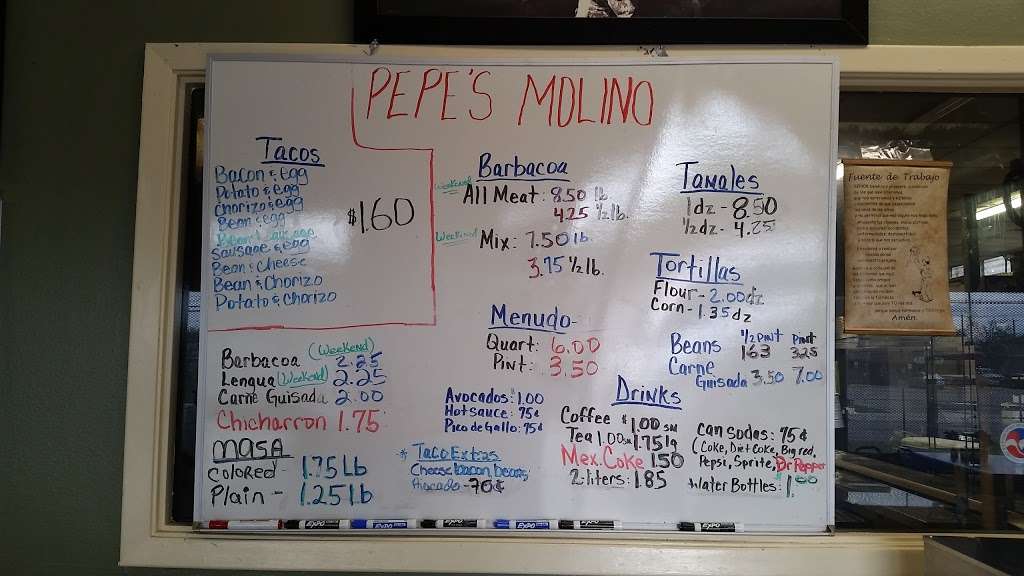 PEPE'S MOLINO
Tacos
Bacon & Egg
Potato & Egg
Chorizo & egg
Bean & egg
Sausage & Egg
Bean & Cheese
Bean & Chorizo
Potato & Chorizo
$1.60
Barbacoa (Weekend) 2.25
Lengua (Weekend) 2.25
Carne Guisada 2.00
Chicharron 1.75
MASA
Colored - 1.75 Lb
Plain - 1.25 lb
Barbacoa
Weekend All Meat: 8.50 lb
4.25 ½ lb.
Weekend Mix: 7.50 lb.
3.75 ½ lb.
Menudo
Quart: 6.00
Pint: 3.50
Avocados: 1.00
Hot sauce: 75¢
Pico de Gallo: 75¢
* Taco Extras
Cheese, bacon, beans,
Avocado - 70¢
Tamales
1dz - 8.50
½ dz - 4.25
Tortillas
Flour - 2.00 dz
Corn - 1.35 dz
½ pint pint
Beans 1.63 3.25
Carne Guisada 3.50 7.00
Drinks
Coffee $1.00 sm
Tea 1.00 sm 1.75 lg
Mex. Coke 1.50
2-liters: 1.85
Can Sodas: 75¢
(Coke, Diet Coke, Big red,
Pepsi, Sprite, Dr Pepper
Water Bottles: 1.00
Fuente de Trabajo
Amén
EXPO
EXPO
EXPO
EXPO
EXPO
EXPO